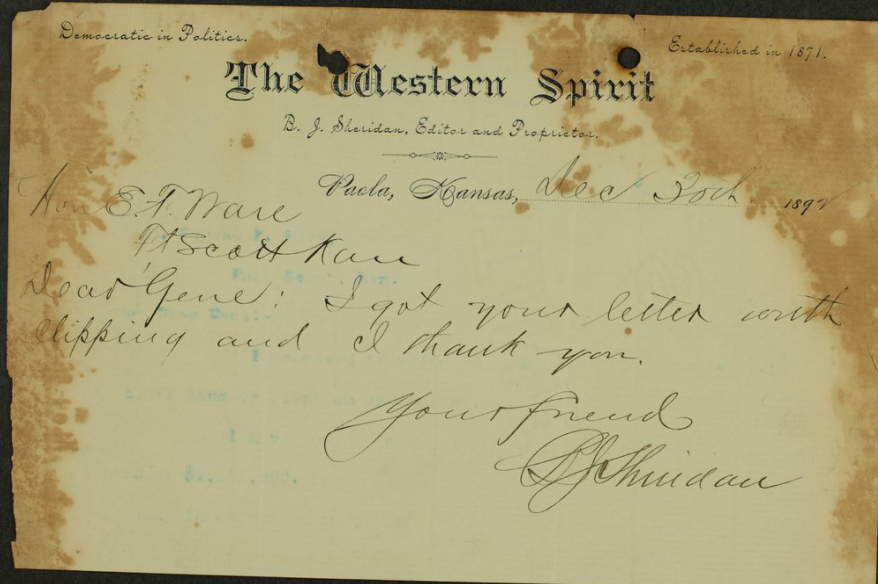 Democratic in Politics.
Established in 1871.
The Western Spirit
B. J. Sheridan, Editor and Proprietor.
Paola, Kansas, Dec 30th 189
Hon E. F. Ware
Ft Scott Kan
Dear Gene: I got your letter with
clipping and I thank you.
Your friend
B J Sheridan